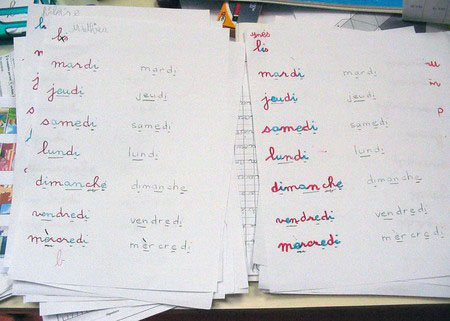 lis
mardi mardi
jeudi jeudi
samedi samedi
lundi lundi
dimanche dimanche
vendredi vendredi
mèrcredi mèrcredi
ynes
lis
mardi mardi
jeudi jeudi
samedi samedi
lundi lundi
dimanche dimanche
vendredi vendredi
mercredi mèrcredi